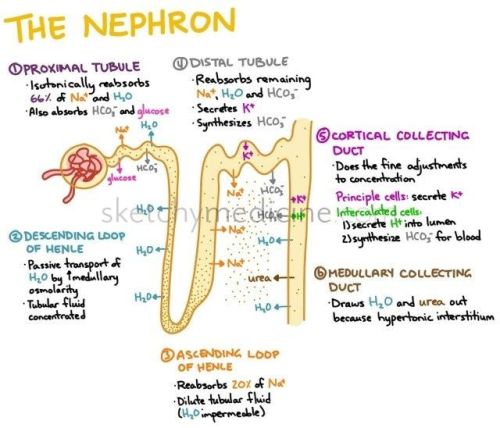 THE NEPHRON
① PROXIMAL TUBULE
· Isotonically reabsorbs
66% of Na⁺ and H₂O
· Also absorbs HCO₃⁻ and glucose
④ DISTAL TUBULE
· Reabsorbs remaining
Na⁺, H₂O and HCO₃⁻
· Secretes K⁺
· Synthesizes HCO₃⁻
Na⁺
H₂O
glucose
HCO₃⁻
K⁺
Na⁺
HCO₃⁻
HCO₃⁻
+K⁺
+H⁺
⑤ CORTICAL COLLECTING
DUCT
· Does the fine adjustments
to concentration
Principle cells: secrete K⁺
Intercalated cells:
1) secrete H⁺ into lumen
2) synthesize HCO₃⁻ for blood
sketchymedicine
② DESCENDING LOOP
OF HENLE
· Passive transport of
H₂O by ↑medullary
osmolarity
· Tubular fluid
concentrated
H₂O
H₂O
H₂O
Na⁺
Na⁺
H₂O
urea
H₂O
⑥ MEDULLARY COLLECTING
DUCT
· Draws H₂O and urea out
because hypertonic interstitium
③ ASCENDING LOOP
OF HENLE
· Reabsorbs 20% of Na⁺
· Dilute tubular fluid
(H₂O impermeable)